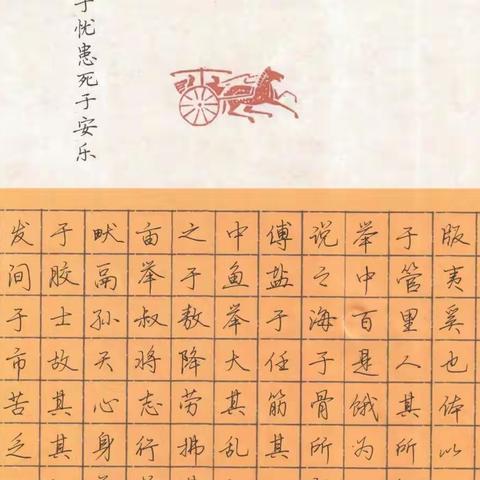 于忧患死于安乐
发于畎亩之中傅说举于版
间胶鬲举于鱼盐之中管夷
于士孙叔敖举于海百里奚
市故天将降大任于是人也
苦其心志劳其筋骨饿其体
乏其身行拂乱其所为所以